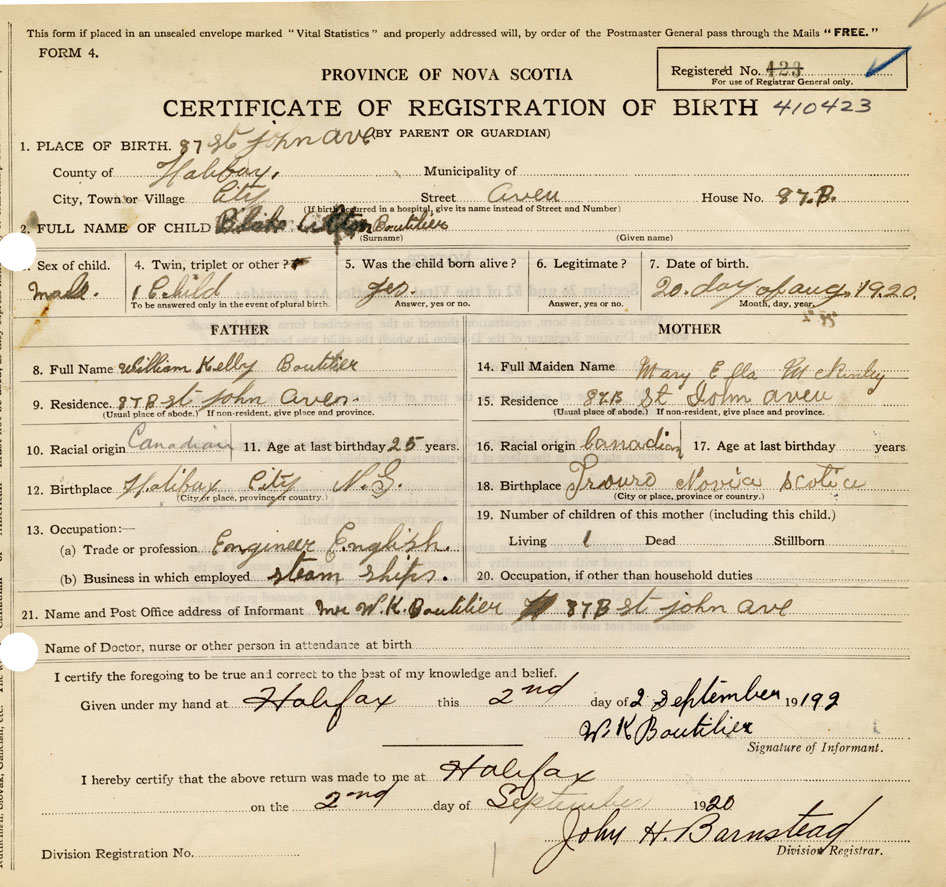 This form if placed in an unsealed envelope marked "Vital Statistics" and properly addressed will, by order of the Postmaster General pass through the Mails "FREE."
FORM 4.
Registered No. 423
For use of Registrar General only.
PROVINCE OF NOVA SCOTIA
CERTIFICATE OF REGISTRATION OF BIRTH 410423
(BY PARENT OR GUARDIAN)
1. PLACE OF BIRTH. 87 St John ave
County of Municipality of
City, Town or Village City Street aven House No. 87.B.
(If birth occurred in a hospital, give its name instead of Street and Number)
2. FULL NAME OF CHILD Boutilier
(Surname) (Given name)
3. Sex of child. 4. Twin, triplet or other? 5. Was the child born alive? 6. Legitimate? 7. Date of birth.
Male. 1 Child yes. 20. day of aug. 1920.
To be answered only in the event of plural birth. Answer, yes or no. Answer, yes or no. Month, day, year.
FATHER MOTHER
8. Full Name William Kelby Boutilier 14. Full Maiden Name Mary Ella McKinley
9. Residence. 87B St John Aven. 15. Residence 87.B St John aven
(Usual place of abode.) If non-resident, give place and province. (Usual place of abode.) If non-resident, give place and province.
10. Racial origin Canadian 11. Age at last birthday 25 years. 16. Racial origin Canadian 17. Age at last birthday years
12. Birthplace Halifax City N.S. 18. Birthplace Trouro Novica scotice
(City or place, province or country.) (City or place, province or country.)
13. Occupation:— 19. Number of children of this mother (including this child.)
(a) Trade or profession Engineer English. Living 1 Dead Stillborn
(b) Business in which employed steam ships. 20. Occupation, if other than household duties
21. Name and Post Office address of Informant Mr W.K. Boutilier 87B St John ave
Name of Doctor, nurse or other person in attendance at birth
I certify the foregoing to be true and correct to the best of my knowledge and belief.
Given under my hand at Halifax this 2nd day of 2 September 19192
W.K Boutilier
Signature of Informant.
I hereby certify that the above return was made to me at Halifax
on the 2nd day of September 1920
John H. Barnstead
Division Registrar.
Division Registration No.